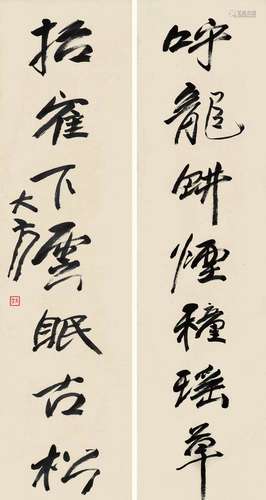 呼龍畊煙種瑶草
招寉下雲眠古松
大康